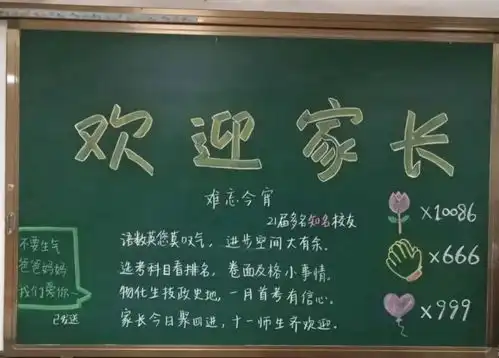 欢迎家长
难忘今宵
21届多名知名校友
语数英您莫叹气，进步空间大有余。
选考科目看排名，卷面及格小事情。
物化生技政史地，一月首考有信心。
家长今日聚四进，十一师生齐欢迎。
不要生气
爸爸妈妈
我们爱你
已发送
×10086
×666
×999